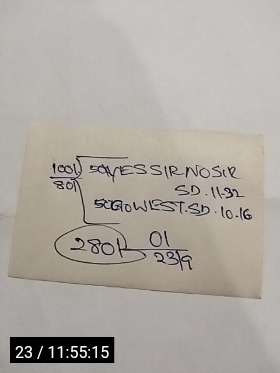 100/ 50 YESSIRNOSIR
80/ SD.11.32
50 GOWEST.SD.10.16
2801 01
23/9
23 / 11:55:15